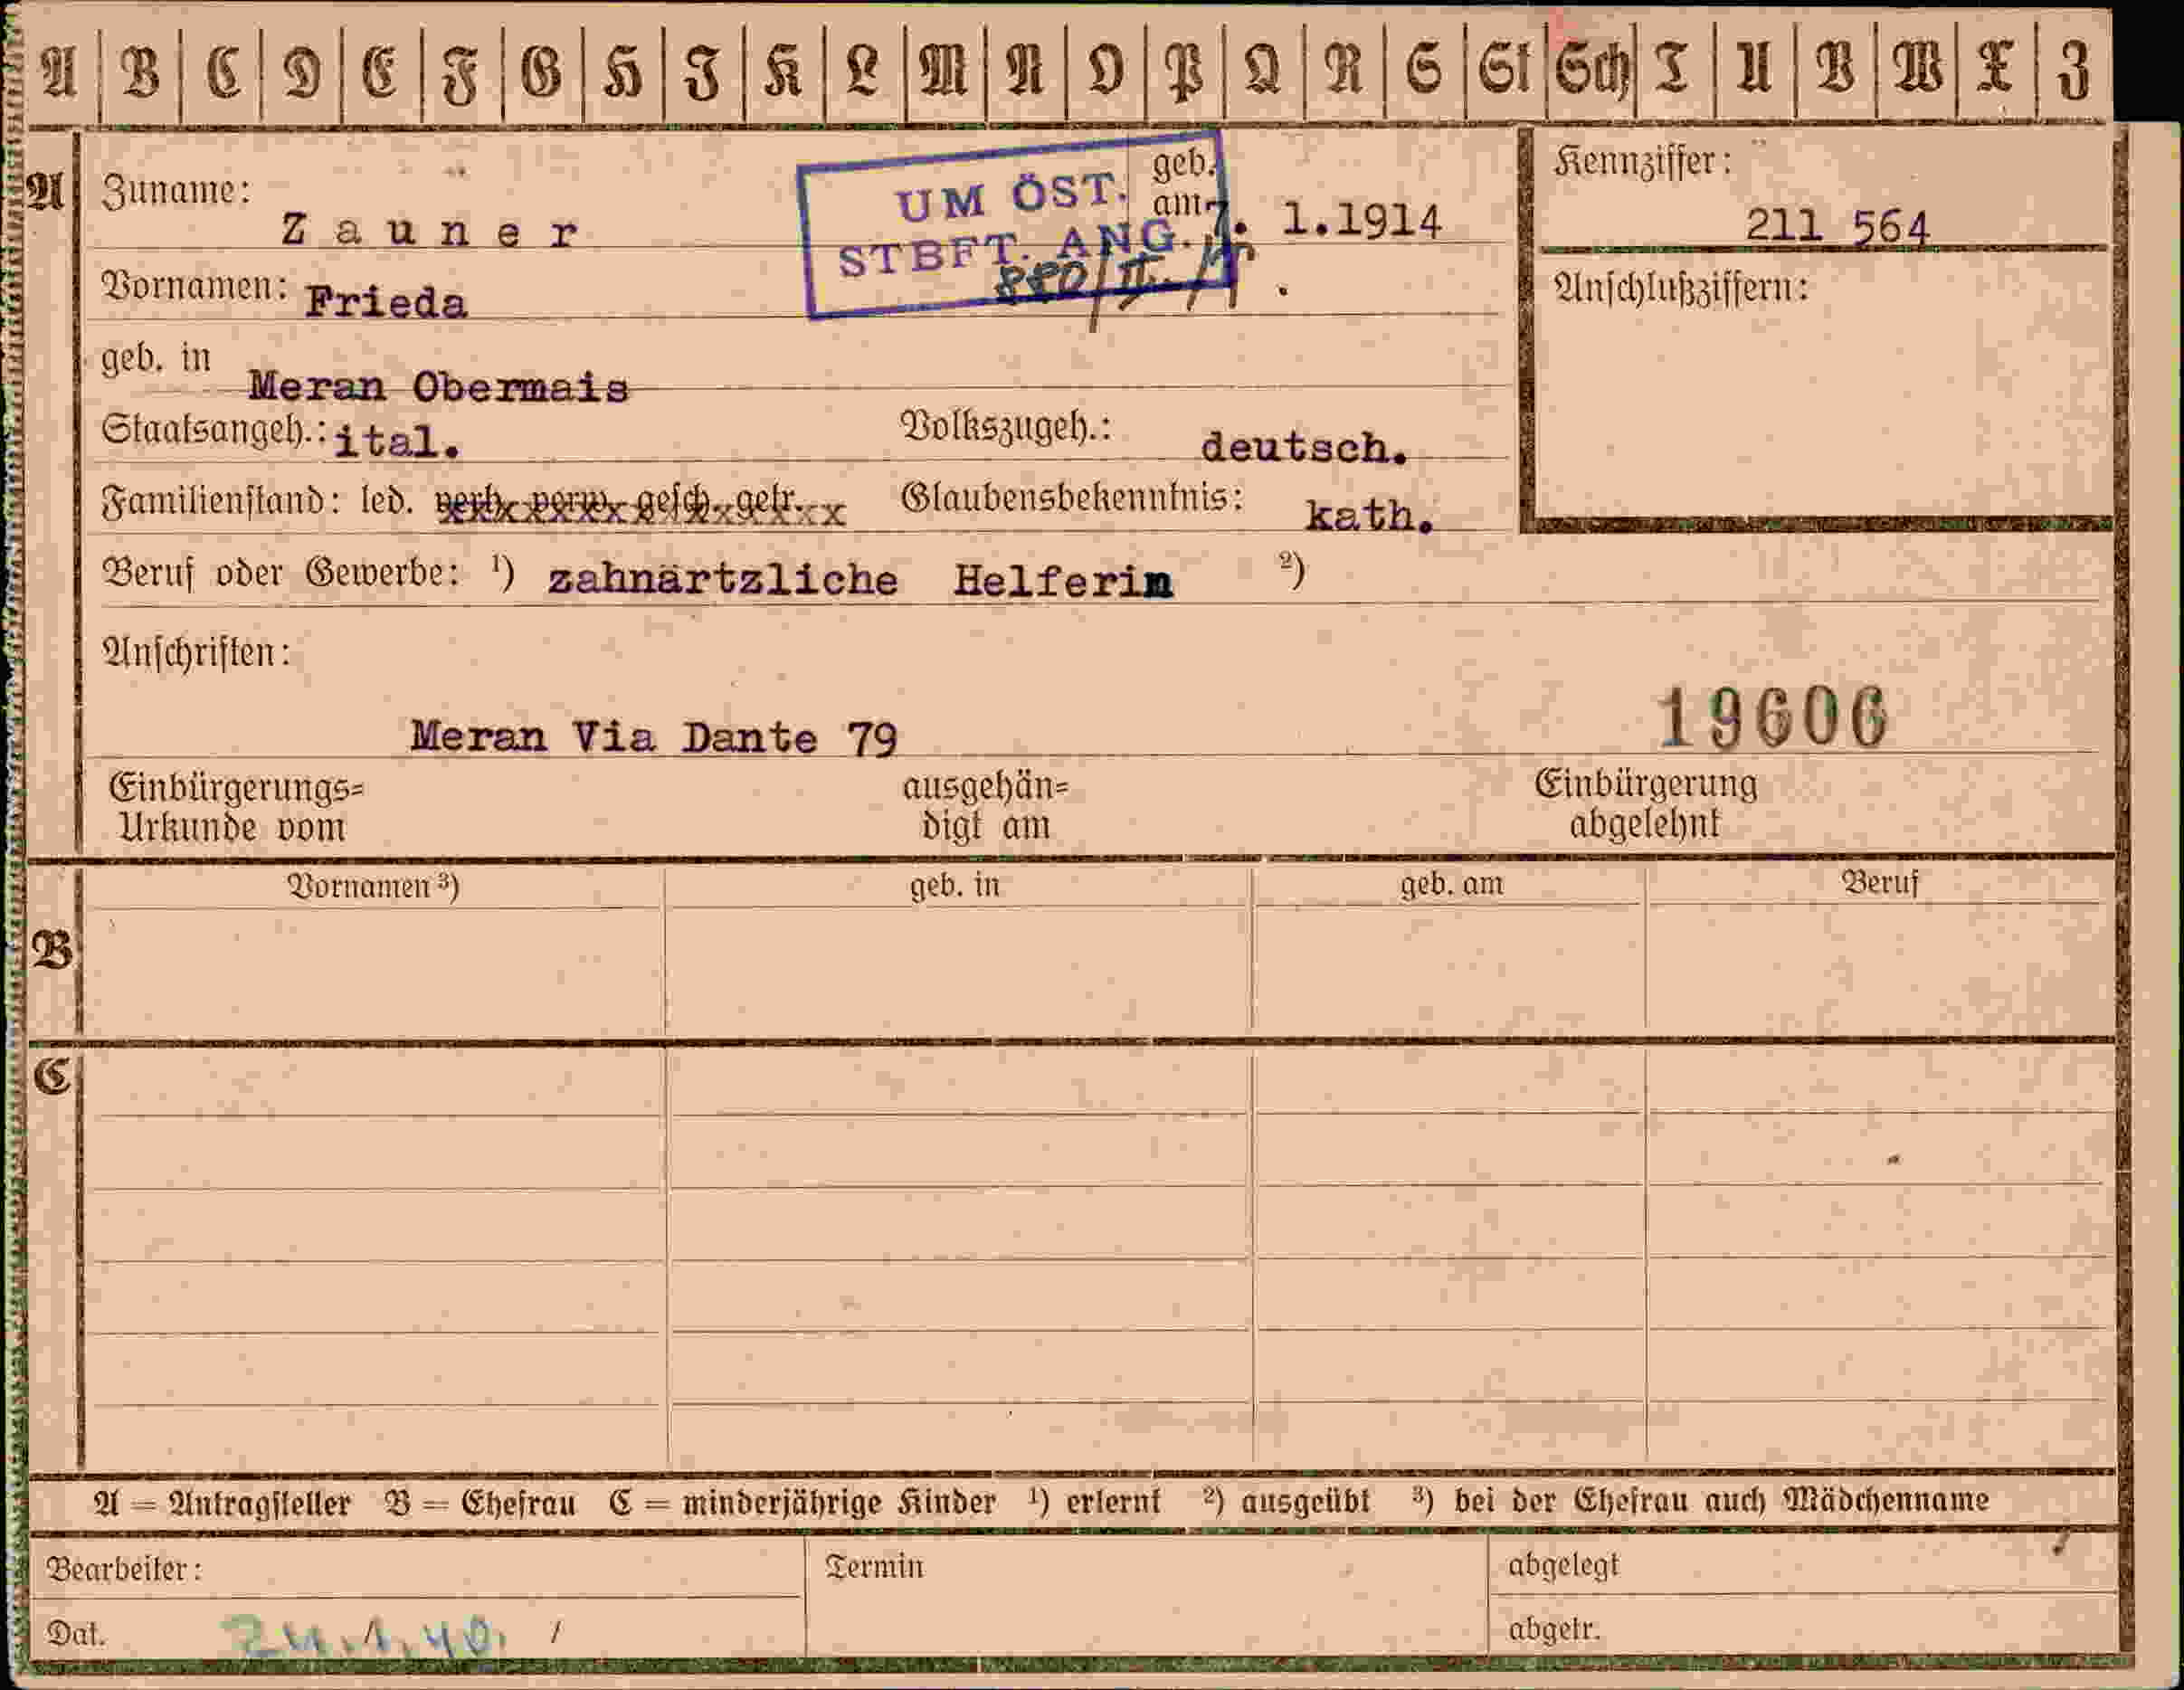 A B C D E F G H I K L M N O P Q R S St Sch T U V W X Z
A
Zuname: Zauner
UM ÖST.
STBFT. ANG.
geb. am 7. 1.1914
Kennziffer:
211 564
Vornamen: Frieda
Anschlußziffern:
geb. in Meran Obermais
Staatsangeh.: ital. Volkszugeh.: deutsch.
Familienstand: led. verh. verw. gesch. getr. Glaubensbekenntnis: kath.
Beruf oder Gewerbe: ¹) zahnärtzliche Helferin ²)
Anschriften:
Meran Via Dante 79
19606
Einbürgerungs-
Urkunde vom
ausgehän-
digt am
Einbürgerung
abgelehnt
B
Vornamen ³) geb. in geb. am Beruf
C
A = Antragsteller B = Ehefrau C = minderjährige Kinder ¹) erlernt ²) ausgeübt ³) bei der Ehefrau auch Mädchenname
Bearbeiter: Termin abgelegt
Dat. 24.1.40. / abgetr.